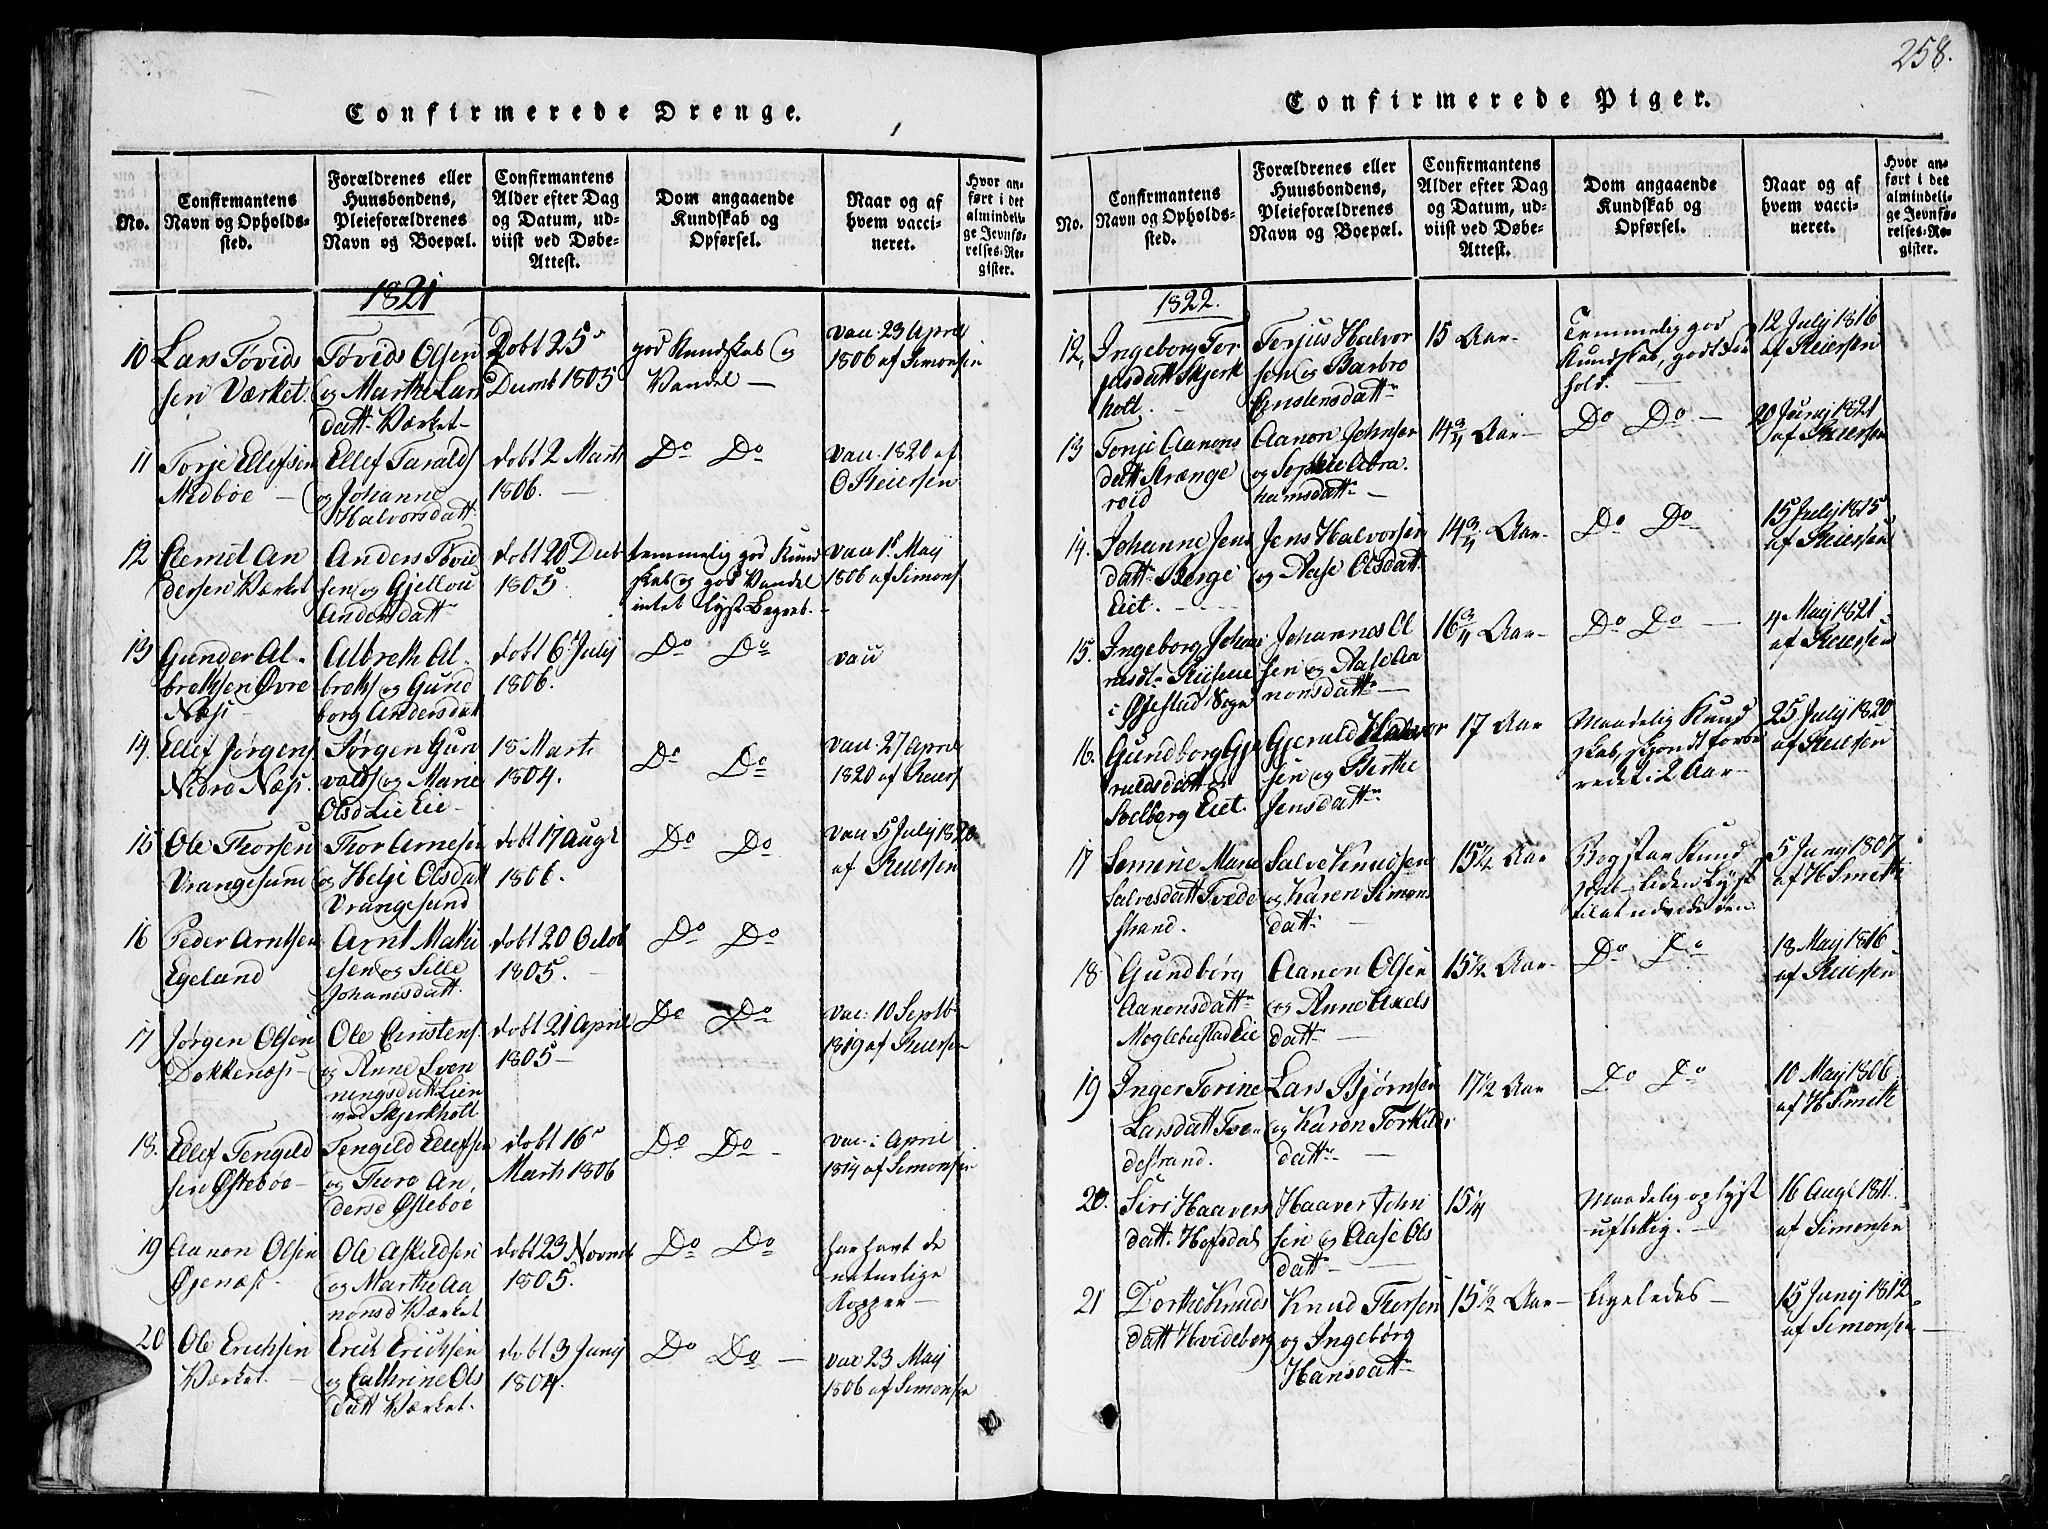 258.
Confirmerede Drenge.
No.
Confirmantens
Navn og Opholds-
sted.
Forældrenes eller
Huusbondens,
Pleieforældrenes
Navn og Boepæl.
Confirmantens
Alder efter Dag
og Datum, ud-
viist ved Døbe-
Attest.
Dom angaaende
Kundskab og
Opførsel.
Naar og af
hvem vacci-
neret.
Hvor an-
ført i det
almindeli-
ge Jevnfø-
relses-Re-
gister.
1821
10
Lars Tøvids
sen Værket.
Tøvids Olsen
og Marthe Lars
datt. Værket
Døbt 25
Decmb 1805
god Kundskab og
Vandel —
vac. 23 April
1806 af Simonsen
11
Torje Ellefsen
Nedbøe —
Ellef Taralds
og Johanne
Halvorsdatt.
døbt 2 Marts
1806. —
Do Do
vac. 1820 af
O Reiersen
12
Clemet An
dersen Værket
Anders Tøvid
sen og Gjellou
Andersdattr
døbt 20 Decb
1805.
temmelig god Kund
skab og god Vandel
intet lyst Begreb.
vac 1 Maij
1806 af Simons
13
Gunder Al-
brektsen Øvre
Næss
Albrekt Al-
brekts og Gund
borg Andersdatt
døbt 6 Julij
1806.
Do Do
vac
14.
Ellef Jørgens
Nedre Næss.
Jørgen Gun
valds og Marie
Olsd Lie Eie —
18 Marts
1804.
Do Do
vac. 27 April
1820 af Reiers
15
Ole Thorsen
Vrangesund
Thor Arnesen
og Helje Olsdatt
Vrangesund
døbt 17 Augt
1806.
Do Do
vac 5 Julij 1820
af Reiersen
16
Peder Arntsen
Egeland
Arnt Mathi
esen og Sille
Johanisdatt.
døbt 20 Octob
1805.
Do Do
17
Jørgen Olsen
Dokkenæs —
Ole Cristens.
og Anne Sven
ningsdatt Lien
ved Skjerkholt
døbt 21 April
1805 —
Do Do
vac: 10 Septb
1819 af Reiersen
18.
Ellef Tengeld
sen Østebøe —
Tengeld Ellefsen
og Thore An,
dersd Østebøe
døbt 16
Marts 1806
Do Do —
vac. i April
1814 af Simonsen
19
Aanon Olsen
Øjenæs —
Ole Askildsen
og Marthe Aa
nonsd Værket
døbt 23 Novmb
1805.
Do Do
har havt de
naturlige
Kopper —
20
Ole Ericksen
Værket. —
Erick Ericksen
og Cathrine Ols
datt Værket.
døbt 3 Junij
1804.
Do Do —
vac 23 Maij
1806 af Simonsen
Confirmerede Piger.
No.
Confirmantens
Navn og Opholds-
sted.
Forældrenes eller
Huusbondens,
Pleieforældrenes
Navn og Boepæl.
Confirmantens
Alder efter Dag
og Datum, ud-
viist ved Døbe-
Attest.
Dom angaaende
Kundskab og
Opførsel.
Naar og af
hvem vacci-
neret.
Hvor an-
ført i det
almindeli-
ge Jevnfø-
relses-Re-
gister.
1822.
12,
Ingeborg Ter
jusdatt Skjerk
holt.
Terjus Halvor
sen og Barbro
Enstensdattr
15 Aar-
Temmelig god
Kundskab, godt for
hold. —
12 Julij 1816
af Reiersen
13
Tonje Aanons
datt Strænge
reid
Aanon Johnsen
og Sophie Abra.
hamsdattr —
14 3/4 Aar —
Do Do —
20 Junij 1821
af Reiersen
14.
Johanne Jens
datt. Berge
Eiet. —
Jens Halvorsen
og Aase Olsdatt.
14 3/4 Aar-
Do Do
15 Julij 1815
af Reiersen
15.
Ingeborg Johan
nesdtr
i Øjestad Sogn
Johannes Ol
sen og Aase Aa
nonsdattr —
16 3/4 Aar-
Do Do —
4 Maij 1821
af Reiersen
16.
Gundborg Gje
ruldsdatt
Solberg Eiet.
Gjeruld Halvor
sen og Berthe
Jensdattr
17 Aar
Maadelig Kund
skab, skjøndt forbe
redet i 2 Aar —
25 Julij 1820
af Reiersen
17
Semine Marie
Salvesdatt Tvede
strand.
Salve Knudsen
og Karen Simons
datt. —
15 1/2 Aar
Bogstav Kund
skab — liden Lyst
til at udvide den.
5 Junij 1807
af H Smith
18
Gundborg
Aanonsdattr
Moglebustad Eie
Aanon Olsen
og Anne Axels
datt —
15 1/2 Aar-
Do Do
18 Maij 1816
af Reiersen
19
Inger Torine
Larsdatt Tve-
destrand.
Lars Bjørnsen
og Karen Torkilds
dattr —
17 1/2 Aar
Do Do
10 Maij 1806.
af H Smith
20.
Siri Haavers
datt. Hofsdal
Haaver John
sen og Aase Ols
datt —
15 1/4
Maadelig oplyst
uflittig. —
16 Augt 1811.
af Simonsen
21
Dorthe Knuds
datt Hvideberg
Knud Thorsen
og Ingebørg
Hansdattr
15 1/2 Aar —
Ligeledes —
15 Junij 1812
af Simonsen —